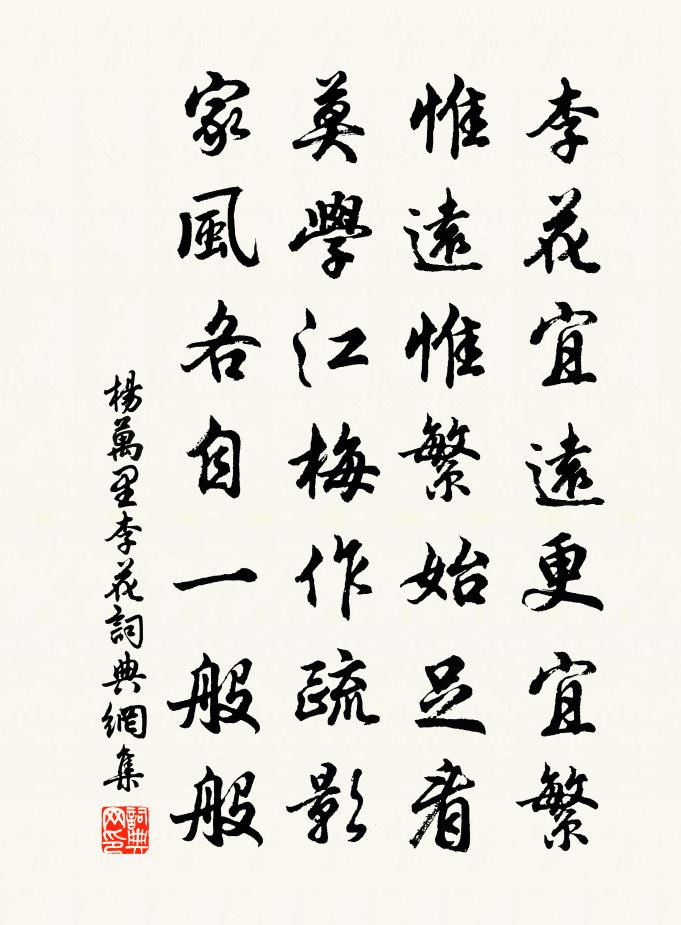 李花宜遠更宜繁
惟遠惟繁始足看
莫學江梅作疏影
家風各自一般般
楊萬里李花詞典網集
詞典網印